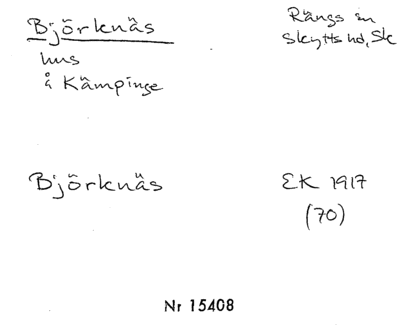 Björknäs
Rängs sn
Skytts hd, Sk
hus
å Kämpinge
Björknäs
EK 1917
(70)
Nr 15408